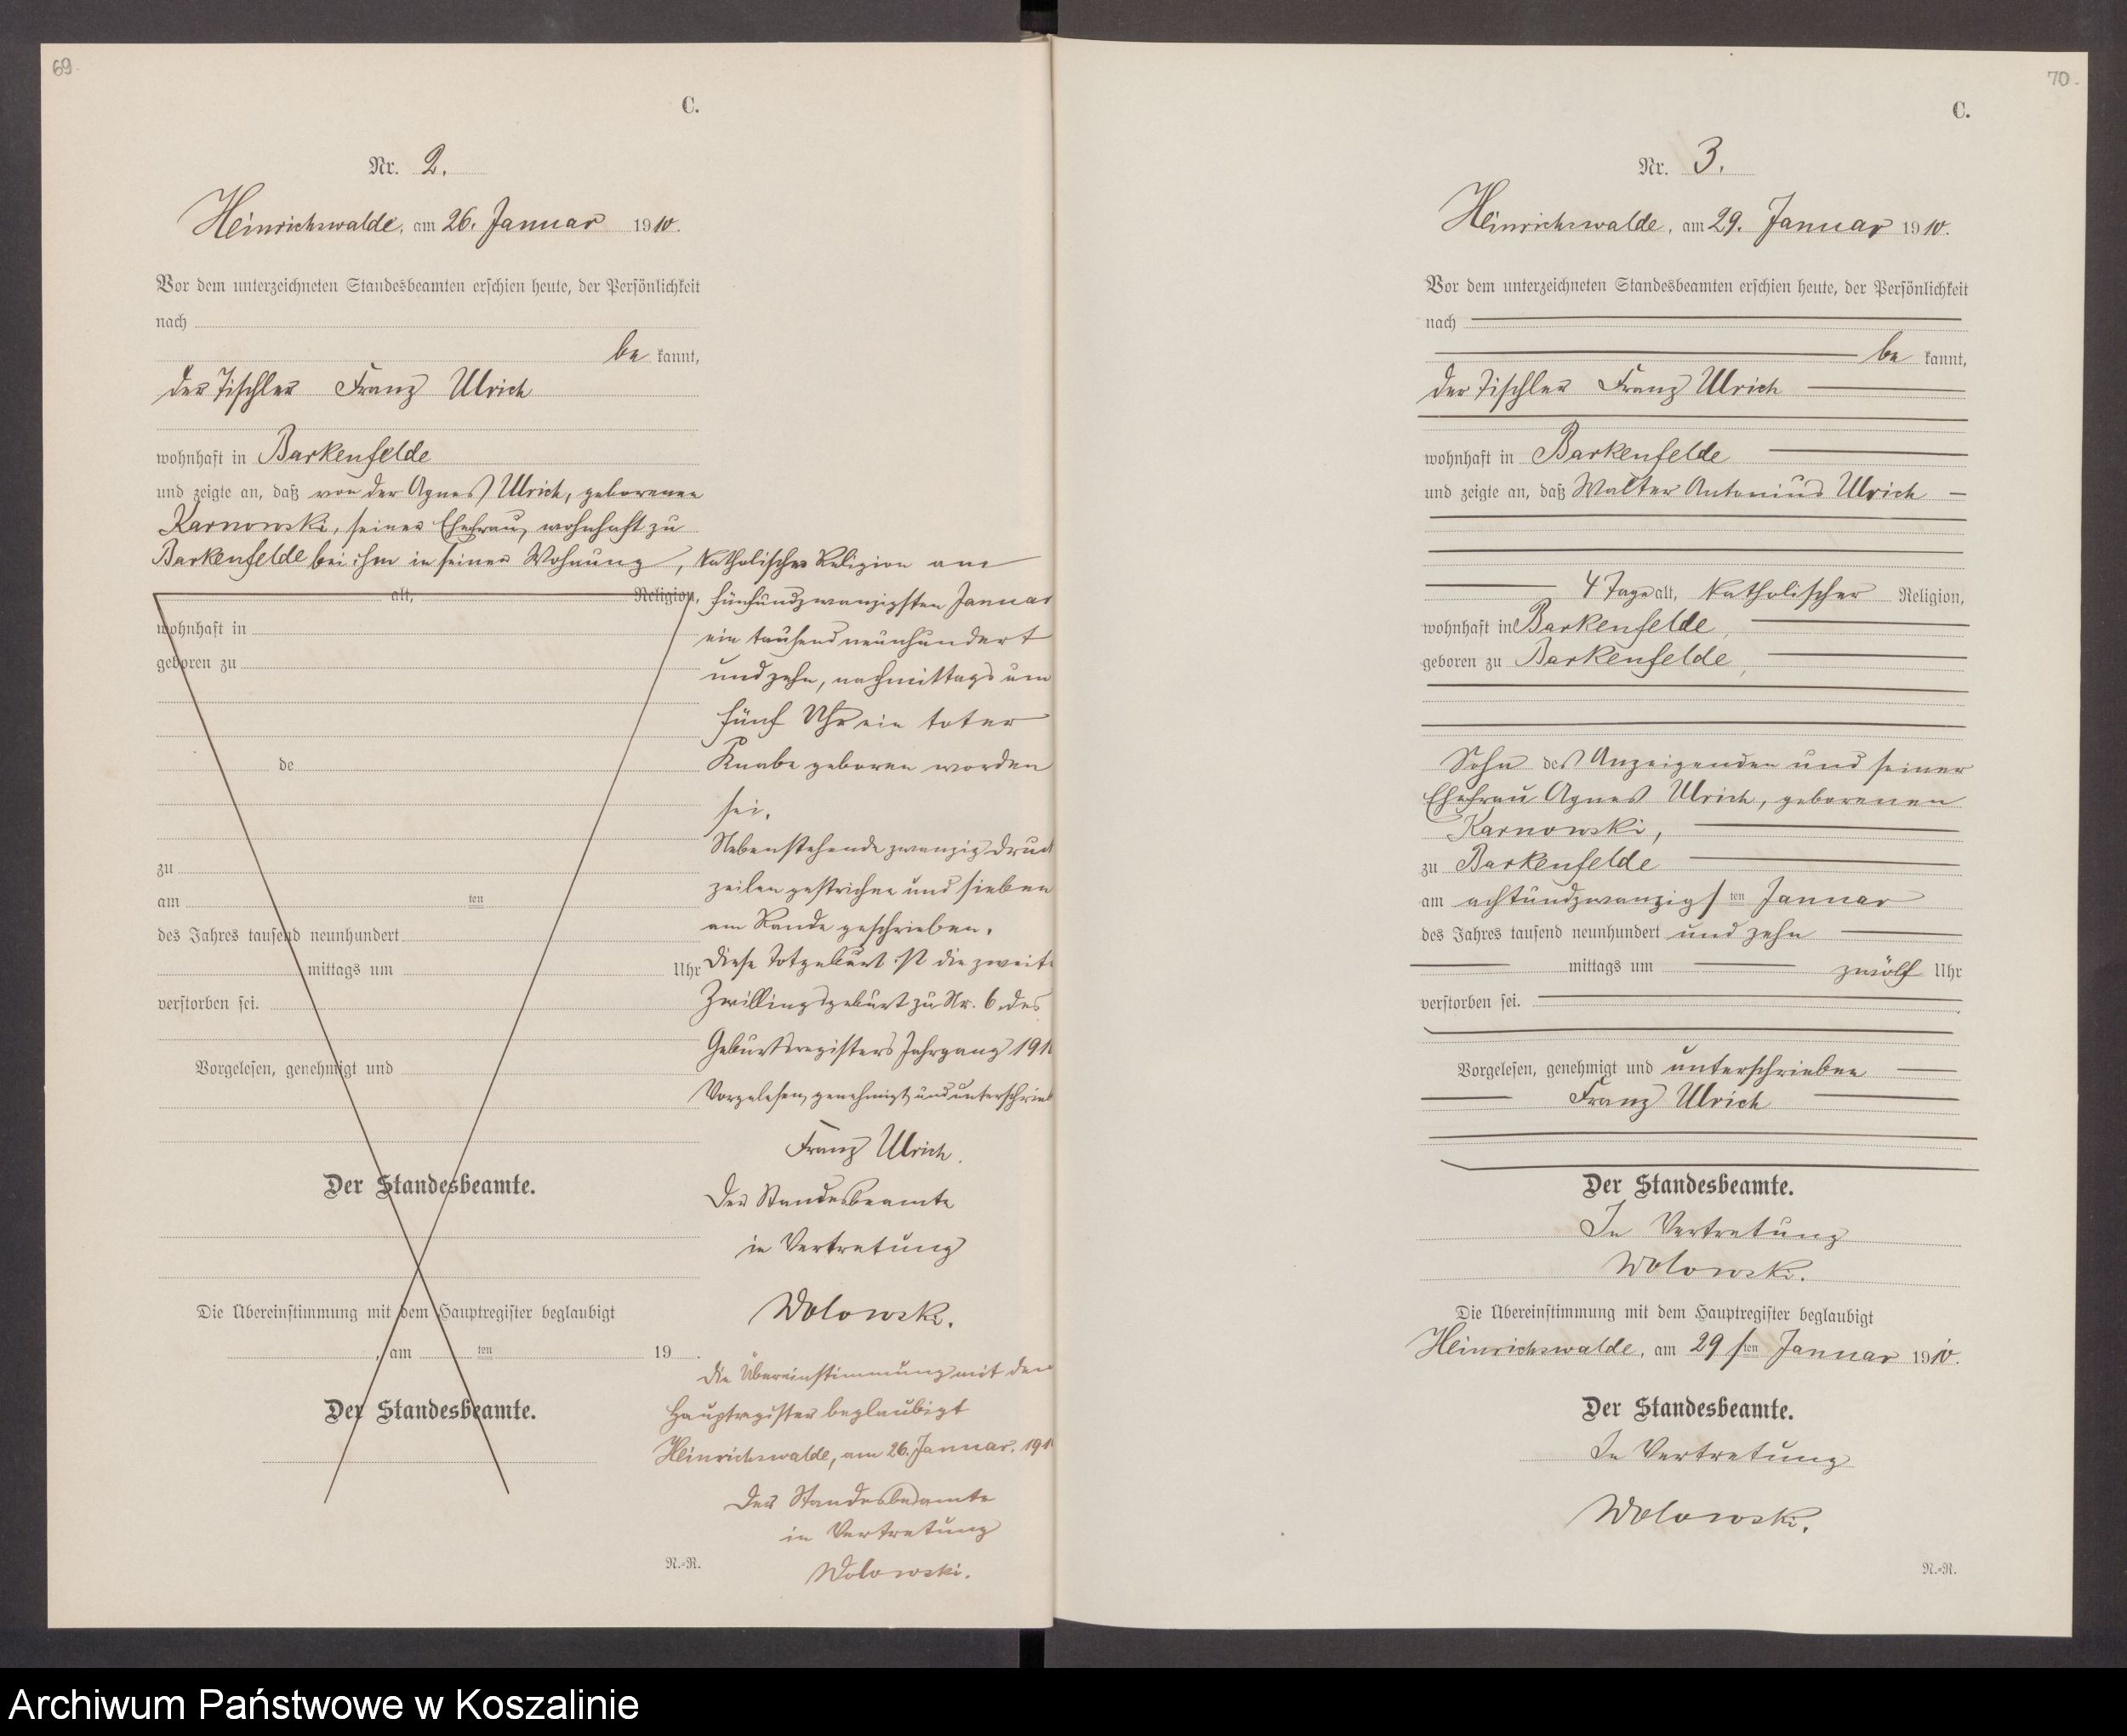 69.
C.
Nr. 2.
Heinrichswalde, am 26. Januar 1910.
Vor dem unterzeichneten Standesbeamten erschien heute, der Persönlichkeit
nach
be kannt,
der Tischler Franz Ulrich
wohnhaft in Barkenfelde
und zeigte an, daß von der Agnes Ulrich, geborenen
Karnowski, seiner Ehefrau, wohnhaft zu
Barkenfelde bei ihm in seiner Wohnung, katholischer Religion am
alt, Religion,
wohnhaft in
geboren zu
de
zu
am ten
des Jahres tausend neunhundert
mittags um Uhr
verstorben sei.
Vorgelesen, genehmigt und
Der Standesbeamte.
Die Übereinstimmung mit dem Hauptregister beglaubigt
, am ten 19 .
Der Standesbeamte.
fünfundzwanzigsten Januar
ein tausend neunhundert
und zehn, nachmittags um
fünf Uhr ein toter
Knabe geboren worden
sei.
Nebenstehende zwanzig Druck
zeilen gestrichen und sieben
am Rande geschrieben.
Diese Totgeburt ist die zweite
Zwillingsgeburt zu Nr. 6 des
Geburtsregisters Jahrgang 1910
Vorgelesen, genehmigt und unterschrieb
Franz Ulrich.
Der Standesbeamte
in Vertretung
Wolowski.
Die Übereinstimmung mit dem
Hauptregister beglaubigt
Heinrichswalde, am 26. Januar. 191
Der Standesbeamte
in Vertretung
Wolowski.
N.=R.
70.
C.
Nr. 3.
Heinrichswalde, am 29. Januar 1910.
Vor dem unterzeichneten Standesbeamten erschien heute, der Persönlichkeit
nach
be kannt,
der Tischler Franz Ulrich
wohnhaft in Barkenfelde
und zeigte an, daß Walter Antonius Ulrich
4 Tage alt, katholischer Religion,
wohnhaft in Barkenfelde,
geboren zu Barkenfelde,
Sohn des Anzeigenden und seiner
Ehefrau Agnes Ulrich, geborenen
Karnowski,
zu Barkenfelde
am achtundzwanzigsten Januar
des Jahres tausend neunhundert und zehn
mittags um zwölf Uhr
verstorben sei.
Vorgelesen, genehmigt und unterschrieben
Franz Ulrich
Der Standesbeamte.
In Vertretung
Wolowski.
Die Übereinstimmung mit dem Hauptregister beglaubigt
Heinrichswalde, am 29 sten Januar 1910.
Der Standesbeamte.
In Vertretung
Wolowski.
N.=R.
Archiwum Państwowe w Koszalinie